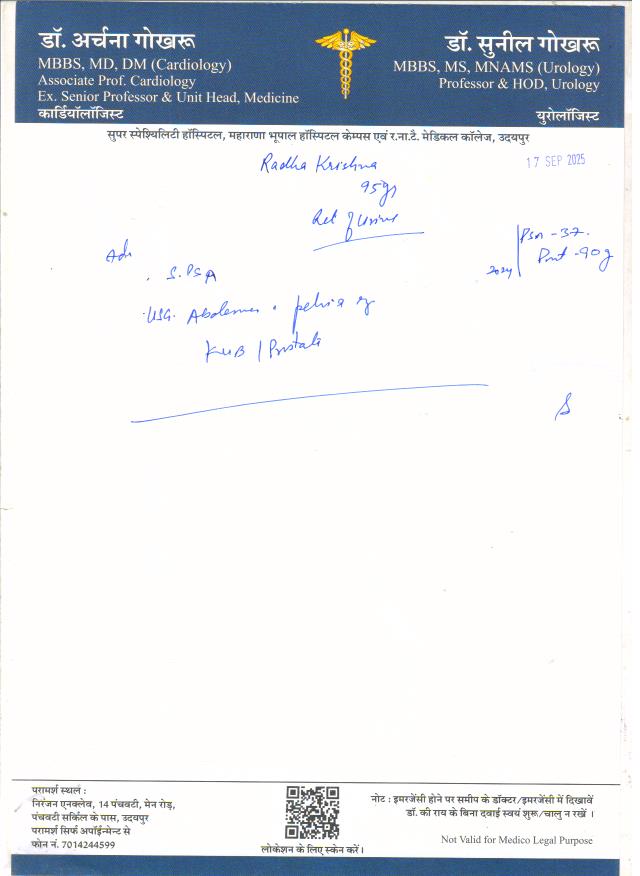 डॉ. अर्चना गोखरू
MBBS, MD, DM (Cardiology)
Associate Prof. Cardiology
Ex. Senior Professor & Unit Head, Medicine
कार्डियॉलॉजिस्ट
डॉ. सुनील गोखरू
MBBS, MS, MNAMS (Urology)
Professor & HOD, Urology
यूरोलॉजिस्ट
सुपर स्पेश्यिलिटी हॉस्पिटल, महाराणा भूपाल हॉस्पिटल केम्पस एवं र.ना.टै. मेडिकल कॉलेज, उदयपुर
17 SEP 2025
Radha Krishna
95 yr
Ret of Urine
PSA - 37.
2024
90 g
Adv
. S. PSA
. USG. Abdomen . pelvis
KUB / Prostate
परामर्श स्थल :
निरंजन एनक्लेव, 14 पंचवटी, मेन रोड़,
पंचवटी सर्किल के पास, उदयपुर
परामर्श सिर्फ अपॉईन्मेन्ट से
फोन नं. 7014244599
लोकेशन के लिए स्केन करें।
नोट : इमरजेंसी होने पर समीप के डॉक्टर/इमरजेंसी में दिखावें
डॉ. की राय के बिना दवाई स्वयं शुरू/चालु न रखें ।
Not Valid for Medico Legal Purpose